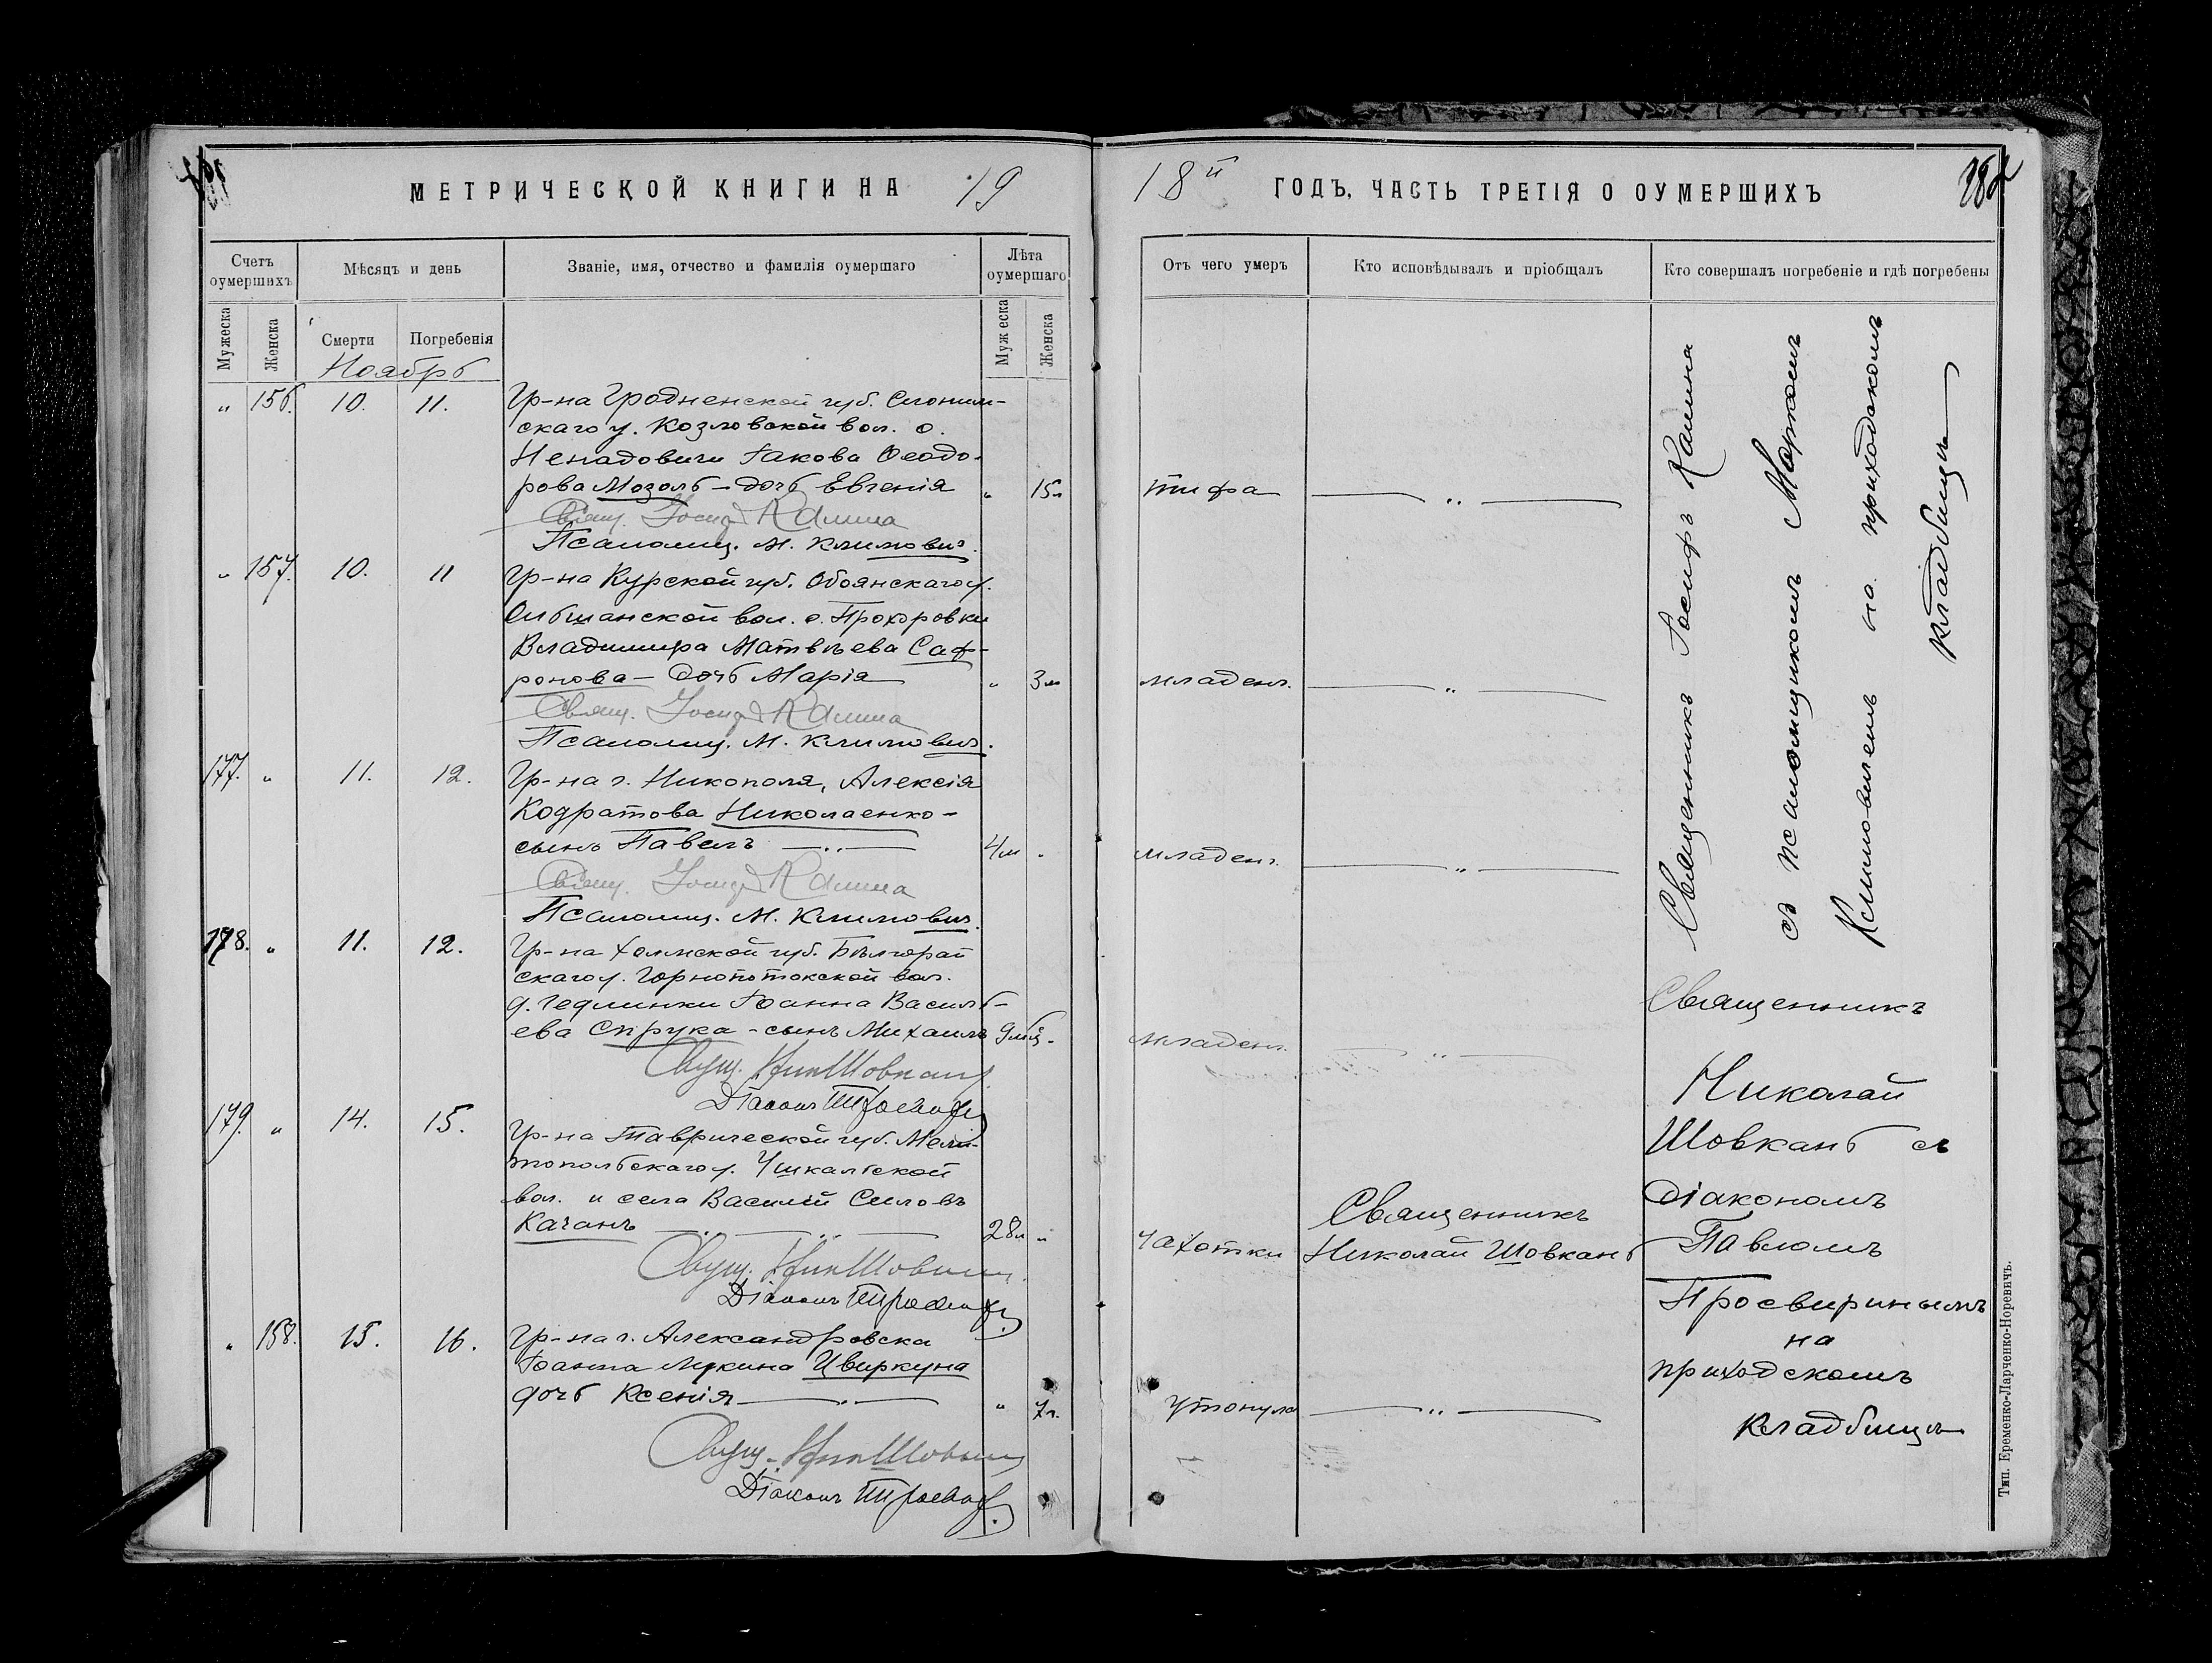 МЕТРИЧЕСКОЙ КНИГИ НА 19
18й ГОДЪ, ЧАСТЬ ТРЕТІЯ О ОУМЕРШИХЪ
Счетъ оумершихъ
Мѣсяцъ и день
Званіе, имя, отчество и фамилія оумершаго
Лѣта оумершаго
Отъ чего умеръ
Кто исповѣдывалъ и пріобщалъ
Кто совершалъ погребеніе и гдѣ погребены
Мужеска
Женска
Смерти
Погребенія
Мужеска
Женска
Ноябрь
" 156. 10. 11. Гр-на Гродненской губ. Слоним-
скаго у. Козловской вол. с.
Ненадовичи Іакова Ѳеодо-
рова Мозоль - дочь Евгенія " 15л тифа — " —
Свящ. Іосифъ Калина
Псаломщ. М. Климович.
" 157. 10. 11 Гр-на Курской губ. Обоянскаго у.
Ольшанской вол. с. Прохоровки
Владимира Матвѣева Саф-
ронова - дочь Марія " 3м младенч. — " —
Свящ. Іосифъ Калина
Псаломщ. М. Климович.
177. " 11. 12. Гр-на г. Никополя, Алексія
Кодратова Николаенко -
сынъ Павелъ — " — 4м " младенч. — " —
Свящ. Іосифъ Калина
Псаломщ. М. Климович.
178. " 11. 12. Гр-на Холмской губ. Бѣлгорай
скаго у. Горнопотокской вол.
д. Гедлинки Іоанна Василь-
ева Спрука - сынъ Михаилъ младенч. — " —
Свящ. Ник Шовкань
Діаконъ
179. " 14. 15. Гр-на Таврической губ. Мели-
топольскаго у. Чшкальской
вол. и села Василій Силовъ
Качанъ — " — 28л " чахотки
Священникъ
Николай Шовкань
Свящ. Ник Шовкань
Діаконъ
" 158. 15. 16. Гр-на г. Александровска
Іоанна Лукина Цвиркуна
дочь Ксенія — " — " 7л. утонула — " —
Свящ. Ник Шовкань
Діаконъ
Священникъ Іосифъ Калина
съ псаломщикомъ Маркомъ
Климовичемъ на приходскомъ
кладбищѣ
Священникъ
Николай
Шовкань съ
діакономъ
Павломъ
Просвиринымъ
на
приходскомъ
кладбищѣ
Тип. Еременко-Ларченко-Норевичъ.